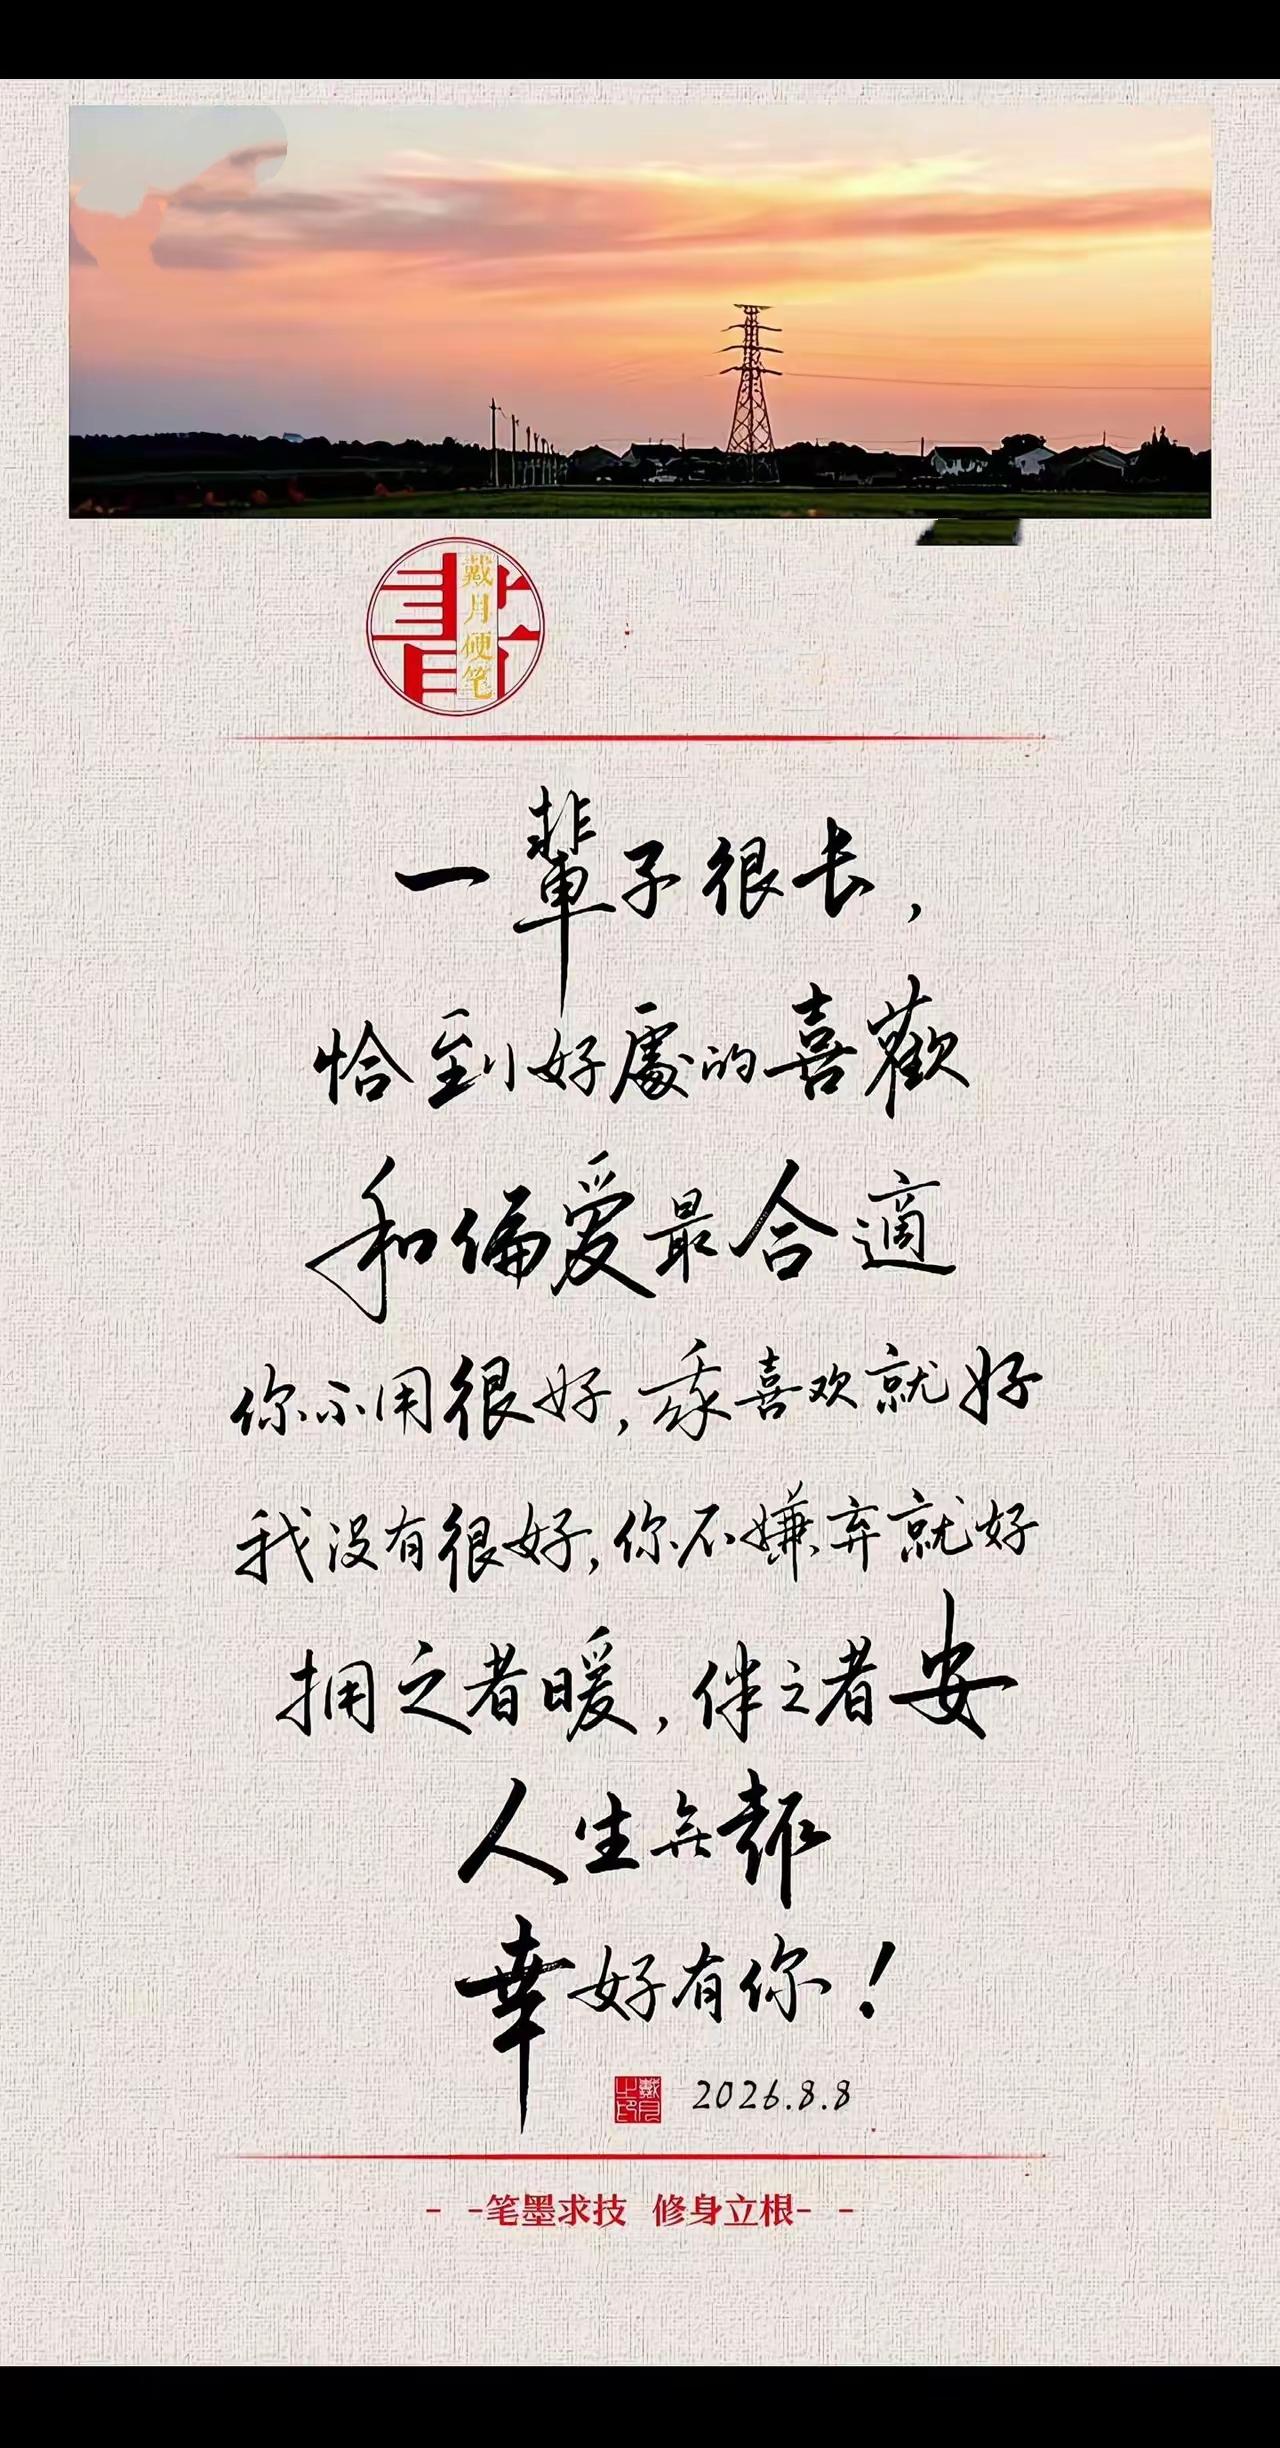 書
戴月硬笔
一輩子很长，
恰到好處的喜歡
和偏爱最合適
你不用很好，我喜欢就好
我没有很好，你不嫌弃就好
拥之者暖，伴之者安
人生无趣
幸好有你！
戴月之印 2026.8.8
- -笔墨求技 修身立根- -